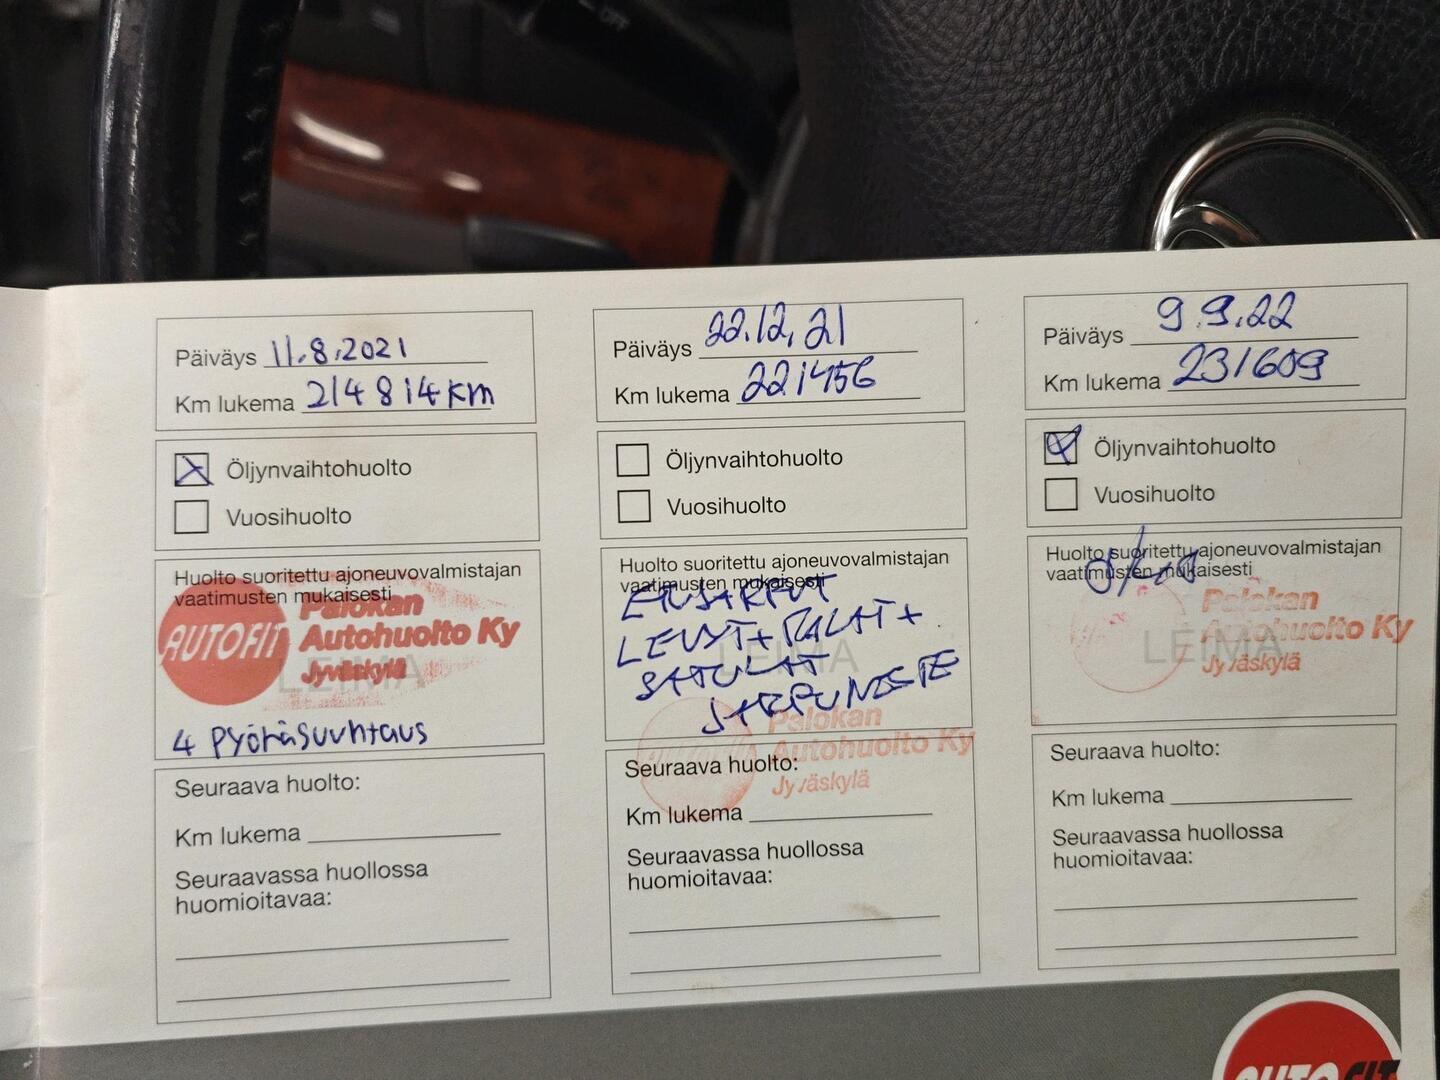 OFF
Päiväys 11.8.2021
Km lukema 214814 km
Öljynvaihtohuolto
Vuosihuolto
Huolto suoritettu ajoneuvovalmistajan
vaatimusten mukaisesti
AUTOFIT
Palokan
Autohuolto Ky
Jyväskylä
LEIMA
4 PYöRäSUUNTAUS
Seuraava huolto:
Km lukema
Seuraavassa huollossa
huomioitavaa:
Päiväys 22.12.21
Km lukema 221456
Öljynvaihtohuolto
Vuosihuolto
Huolto suoritettu ajoneuvovalmistajan
vaatimusten mukaisesti
ETUJARRUT
LEVYT + PALAT +
SATULAT
JARRUNESTE
LEIMA
Palokan
Autohuolto Ky
Jyväskylä
Seuraava huolto:
Km lukema
Seuraavassa huollossa
huomioitavaa:
Päiväys 9.9.22
Km lukema 231609
Öljynvaihtohuolto
Vuosihuolto
Huolto suoritettu ajoneuvovalmistajan
vaatimusten mukaisesti
LEIMA
Palokan
Autohuolto Ky
Jyväskylä
Seuraava huolto:
Km lukema
Seuraavassa huollossa
huomioitavaa:
AUTOFIT